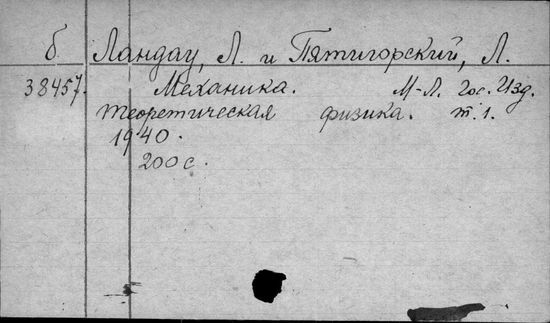 б Ландау, Л. и Пятигорский, Л.
38457. Механика. М-Л. Гос. Изд.
теоретическая физика. т. 1.
1940.
200 с.